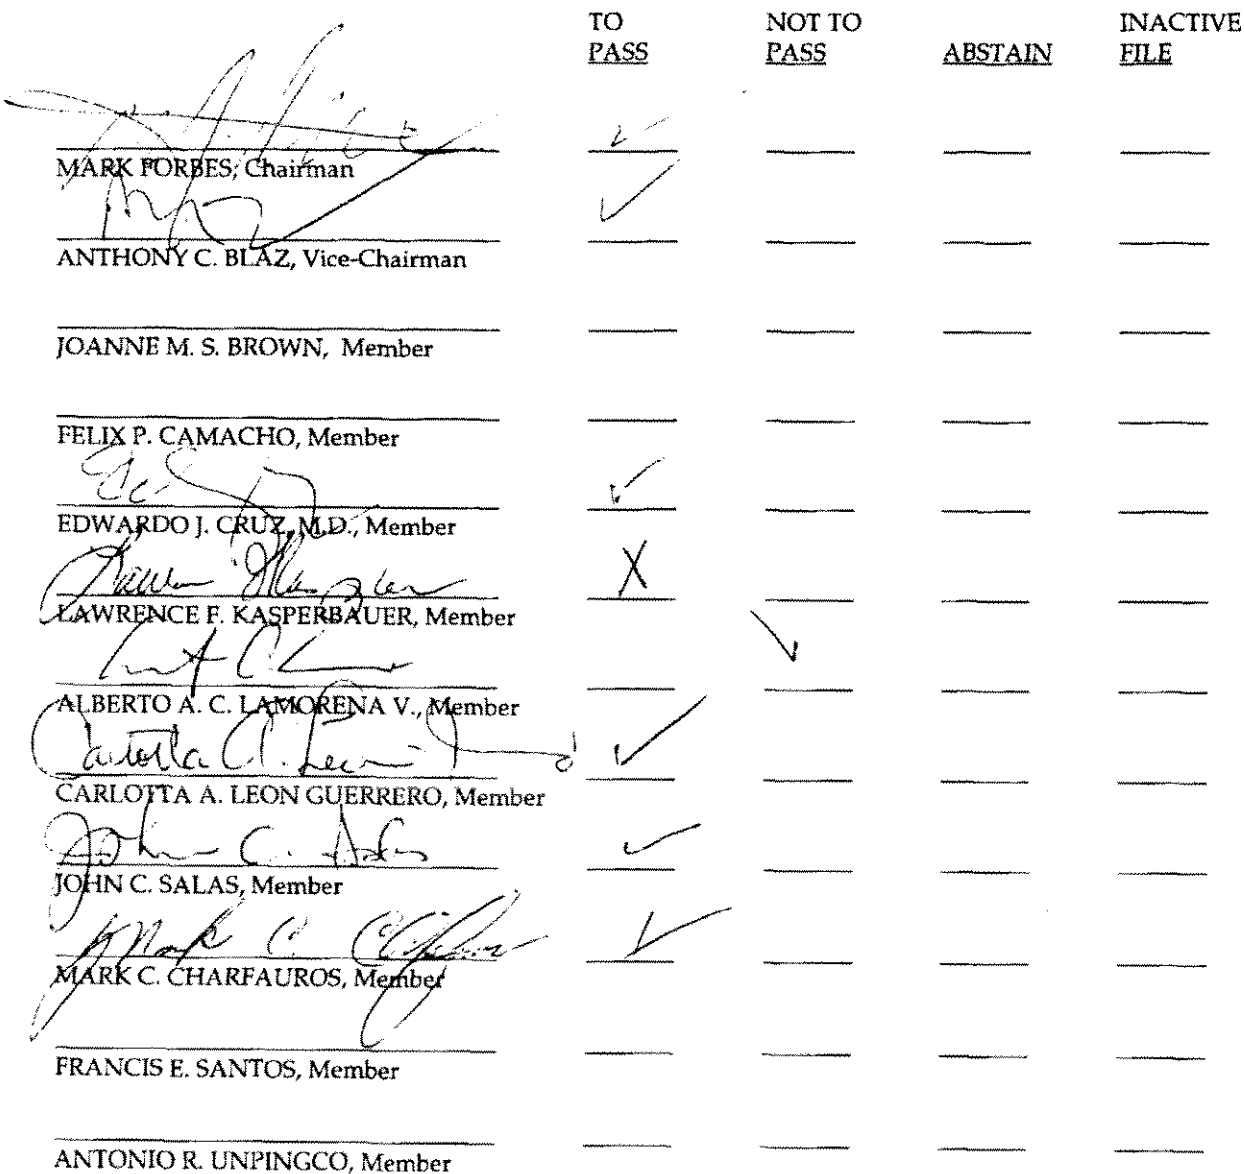 TO NOT TO INACTIVE
PASS PASS ABSTAIN FILE
MARK FORBES, Chairman
ANTHONY C. BLAZ, Vice-Chairman
JOANNE M. S. BROWN, Member
FELIX P. CAMACHO, Member
EDWARDO J. CRUZ, M.D., Member
X
LAWRENCE F. KASPERBAUER, Member
ALBERTO A. C. LAMORENA V., Member
CARLOTTA A. LEON GUERRERO, Member
John C. Salas
JOHN C. SALAS, Member
Mark C.
MARK C. CHARFAUROS, Member
FRANCIS E. SANTOS, Member
ANTONIO R. UNPINGCO, Member